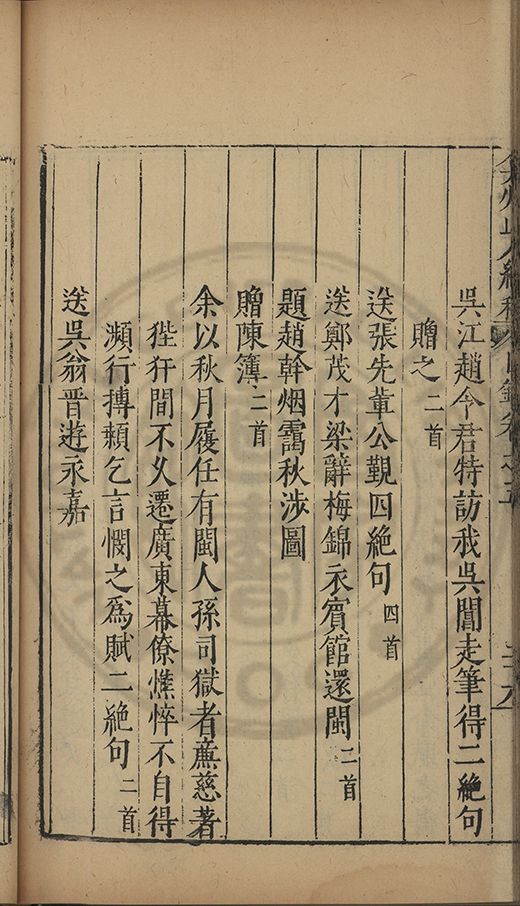 吳江趙令君特訪我吳閶走筆得二絕句
贈之二首
送張先輩公覲四絕句四首
送鄭茂才梁辭梅錦衣賓館還閩二首
題趙幹烟靄秋涉圖
贈陳簿二首
余以秋月履任有閩人孫司獄者藨慈著
狴犴間不久遷廣東幕僚憔悴不自得
瀕行搏顙乞言憫之為賦二絕句二首
送吳翁晋遊永嘉